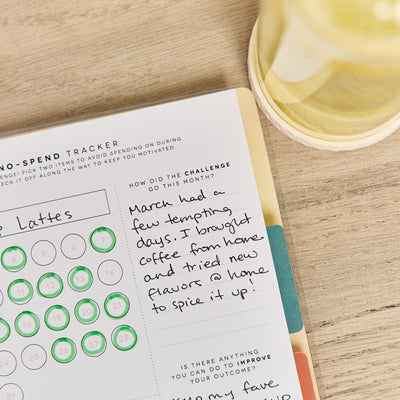 NO-SPEND TRACKER
PICK TWO ITEMS TO AVOID SPENDING ON DURING
IT OFF ALONG THE WAY TO KEEP YOU MOTIVATED
Lattes
4 5 6 7
11 12 13 14
18 19 20 21
25 26 27 28
31
HOW DID THE CHALLENGE
GO THIS MONTH?
March had a
few tempting
days. I brought
coffee from home
and tried new
flavors @ home
to spice it up!
IS THERE ANYTHING
YOU CAN DO TO IMPROVE
YOUR OUTCOME?
my fave